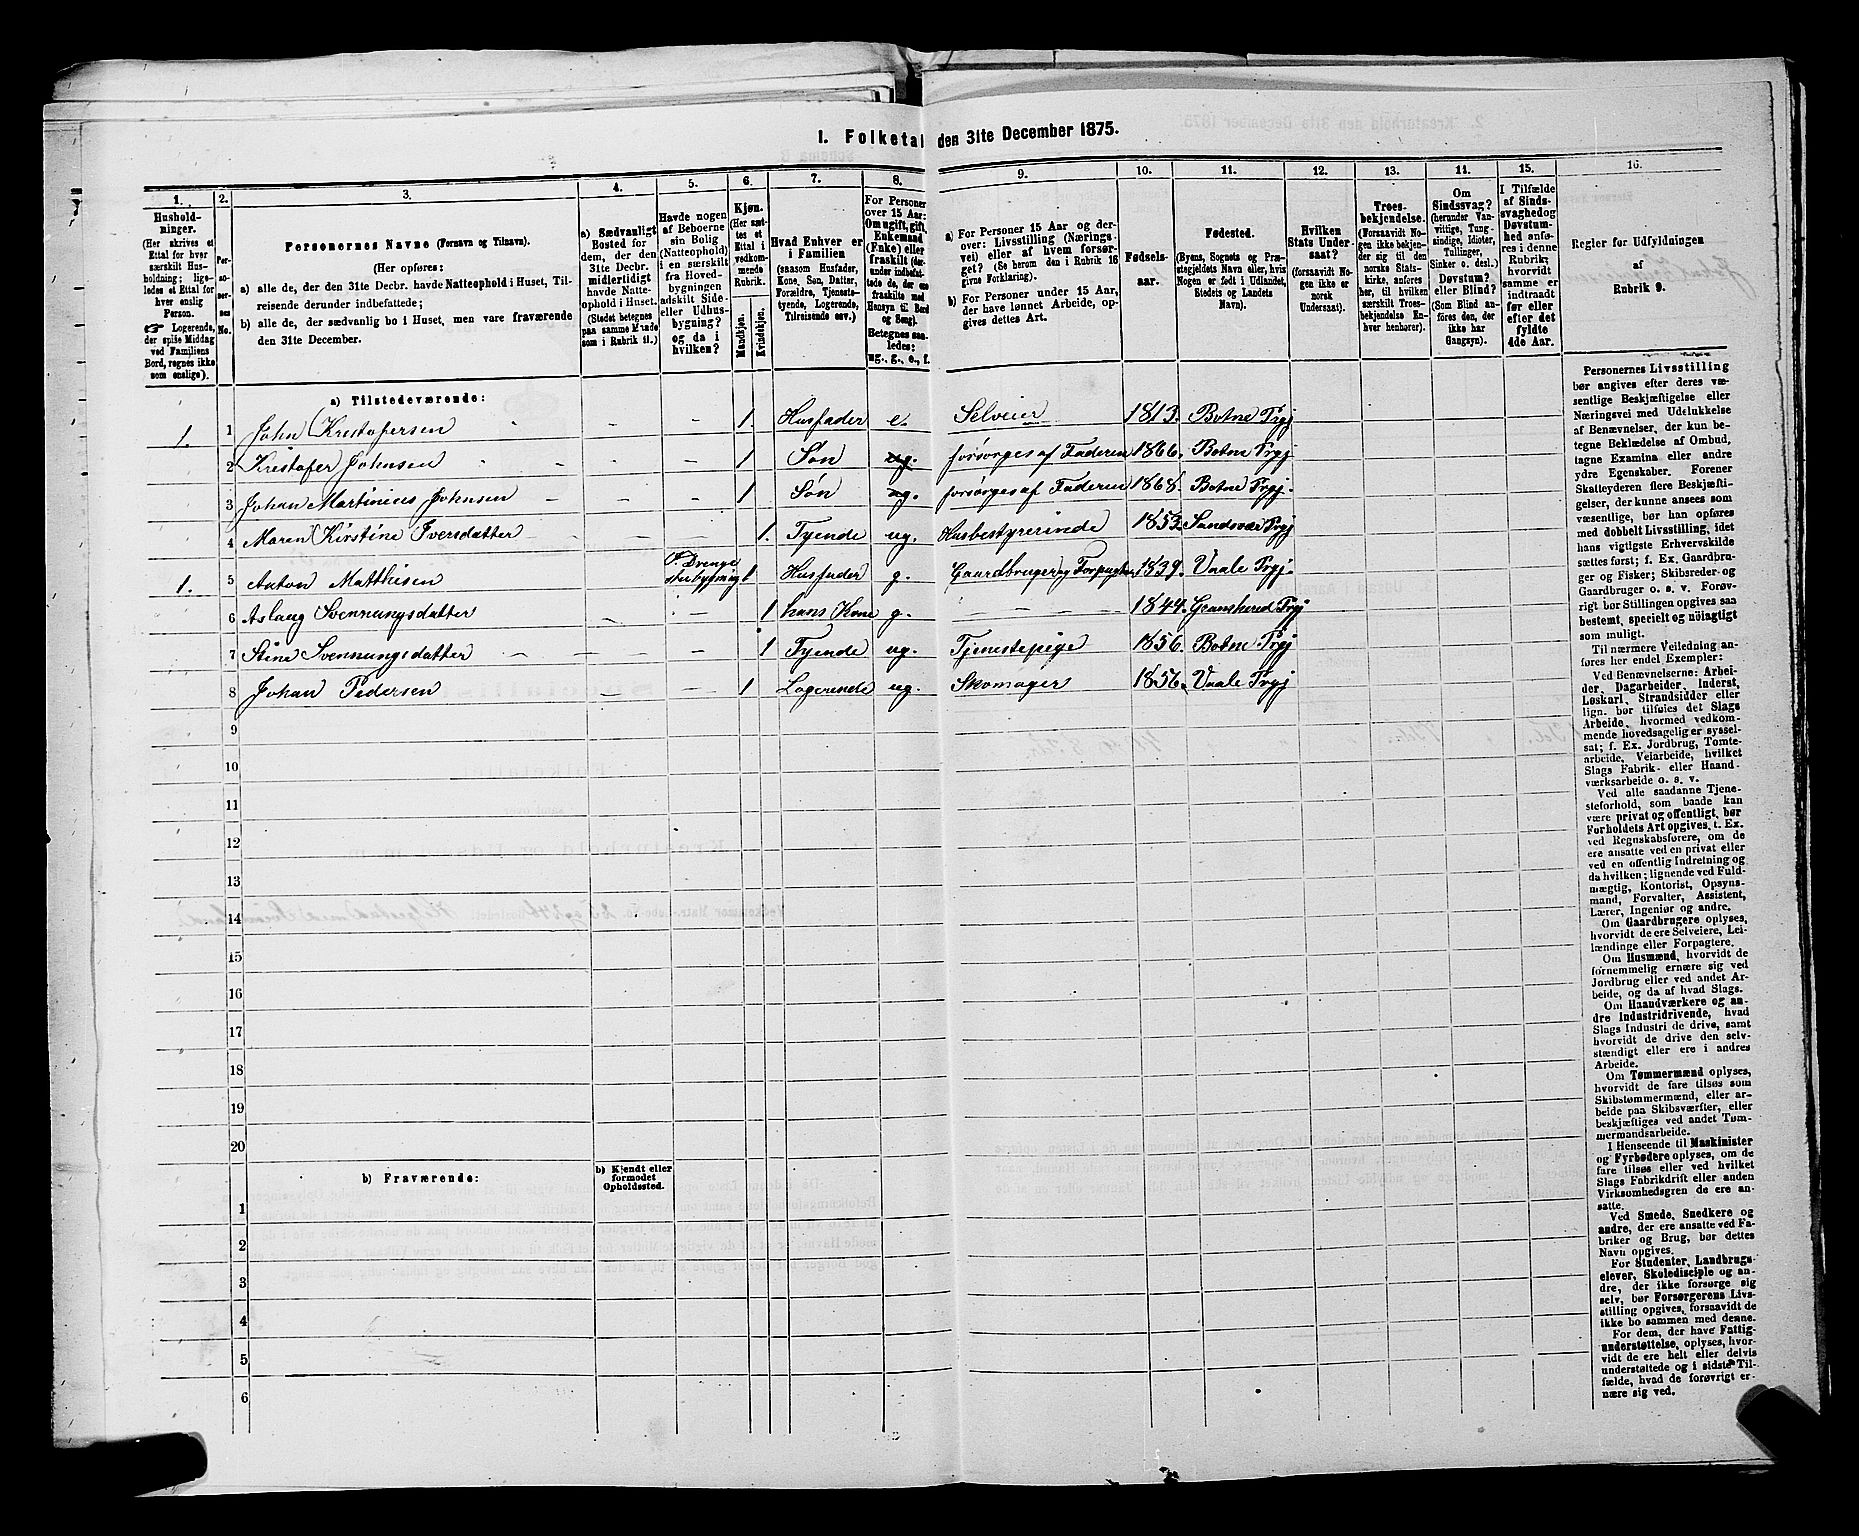 1. Folketal den 31te December 1875.
1. 2. 3. 4. 5. 6. 7. 8. 9. 10. 11. 12. 13. 14. 15. 16.
Hushold-
ninger.
(Her skrives et
Ettal for hver
særskilt Hus-
holdning; lige-
ledes et Ettal for
hver enslig
Person.
☞ Logerende,
der spise Middag
ved Familiens
Bord, regnes ikke
som enslige).
Per-
so-
ner-
nes
No.
Personernes Navne (Fornavn og Tilnavn).
(Her opføres:
a) alle de, der den 31te Decbr. havde Natteophold i Huset, Til-
reisende derunder indbefattede;
b) alle de, der sædvanlig bo i Huset, men vare fraværende
den 31te December.
a) Sædvanligt
Bosted for
dem, der den
31te Decbr.
midlertidigt
havde Natte-
ophold i Huset.
(Stedet betegnes
paa samme Maade
som i Rubrik 11.)
Havde nogen
af Beboerne
sin Bolig
(Natteophold)
i en særskilt
fra Hoved-
bygningen
adskilt Side-
eller Udhus-
bygning?
og da i
hvilken?
Kjøn.
(Her sæt-
tes et
Ettal i
vedkom-
mende
Rubrik.
Mandkjøn.
Kvindekjøn.
Hvad Enhver er
i Familien
(saasom Husfader,
Kone, Søn, Datter,
Forældre, Tjeneste-
tyende, Logerende,
Tilreisende osv.)
For Personer
over 15 Aar:
Om ugift, gift,
Enkemand
(Enke) eller
fraskilt (der-
under indbefat-
tede de, der ere
fraskilte med
Hensyn til Bord
og Seng).
Betegnes saa-
ledes:
ug., g., e., f.
a) For Personer 15 Aar og der-
over: Livsstilling (Nærings-
vei) eller af hvem forsør-
get? (Se herom den i Rubrik 16
givne Forklaring).
b) For Personer under 15 Aar,
der have lønnet Arbeide, op-
gives dettes Art.
Fødsels-
aar.
Fødested.
(Byens, Sognets og Præ-
stegjeldets Navn eller, hvis
Nogen er født i Udlandet,
Stedets og Landets
Navn).
Hvilken
Stats Under-
saat?
(forsaavidt No-
gen ikke er
norsk
Undersaat).
Troes-
bekjendelse.
(Forsaavidt No-
gen ikke bekjen-
der sig til den
norske Stats-
kirke, anføres
her, til hvilken
særskilt Troes-
bekjendelse En-
hver henhører).
Om
Sindssvag?
(herunder Van-
vittige, Tung-
sindige, Idioter,
Tullinger,
Sinker o. desl.)
Døvstum?
eller Blind?
(Som Blind an-
føres den, der
ikke har
Gangsyn).
I Tilfælde
af Sinds-
svaghed og
Døvstum-
hed anfø-
res i denne
Rubrik,
hvorvidt
samme er
indtraadt
før eller
efter det
fyldte
4de Aar.
Regler for Udfyldningen
af
Rubrik 9.
a) Tilstedeværende:
1. 1 John Krestofersen – – 1 Husfader e. Selveier 1813. Botne Prgj
2 Kristofer Johnsen – – 1 Søn ug. forsørges af Faderen 1866. Botne Prgj
3 Johan Martinius Johnsen – – 1 Søn ug. forsørges af Faderen 1868. Botne Prgj.
4 Maren Kirstine Iversdatter – – 1. Tyende ug. Husbestyrerinde 1853 Sandsvær Prgj
1. 5 Anton Matthisen 1 Husfader g. Gaardbruger og Forpagter 1839. Vaale Prgj.
6 Aslaug Svennungsdatter – – 1 hans Kone g. – – – 1844. Granshered Prgj
7 Stine Svennungsdatter – – 1 Tyende ug. Tjenestepige 1856. Botne Prgj
8 Johan Pedersen – – 1 Logerende ug. Skomager 1856. Vaale Prgj
9
10
11
12
13
14
15
16
17
18
19
20
b) Fraværende:
b) Kjendt eller
formodet
Opholdssted.
1
2
3
4
5
6
Personernes Livsstilling
bør angives efter deres væ-
sentlige Beskjæftigelse eller
Næringsvei med Udelukkelse
af Benævnelser, der kun be-
tegne Beklædelse af Ombud,
tagne Examina eller andre
ydre Egenskaber. Forener
Skatteyderen flere Beskjæfti-
gelser, der kunne ansees som
væsentlige, bør han opføres
med dobbelt Livsstilling, idet
hans vigtigste Erhvervskilde
sættes først; f. Ex. Gaardbru-
ger og Fisker; Skibsreder og
Gaardbruger o. s. v. Forøv-
rigt bør Stillingen opgives saa
bestemt, specielt og nøiagtigt
som muligt.
Til nærmere Veiledning an-
føres her endel Exempler:
Ved Benævnelserne: Arbei-
der, Dagarbeider, Inderst,
Løskarl, Strandsidder eller
lign. bør tilføies det Slags
Arbeide, hvormed vedkom-
mende hovedsagelig er syssel-
sat; f. Ex. Jordbrug, Tomte-
arbeide, Veiarbeide, hvilket
Slags Fabrik- eller Haand-
værksarbeide o. s. v.
Ved alle saadanne Tjene-
steforhold, som baade kan
være privat og offentligt, bør
Forholdets Art opgives, t. Ex.
ved Regnskabsførere, om de
ere ansatte ved en privat eller
ved en offentlig Indretning og
da hvilken; lignende ved Fuld-
mægtig, Kontorist, Opsyns-
mand, Forvalter, Assistent,
Lærer, Ingeniør og andre.
Om Gaardbrugere oplyses,
hvorvidt de ere Selveiere, Lei-
lændinge eller Forpagtere.
Om Husmænd, hvorvidt de
fornemmelig ernære sig ved
Jordbrug eller ved andet Ar-
beide, og da af hvad Slags.
Om Haandværkere og an-
dre Industridrivende, hvad
Slags Industri de drive, samt
hvorvidt de drive den selv-
stændigt eller ere i andres
Arbeide.
Om Tømmermænd oplyses,
hvorvidt de fare tilsøs som
Skibstømmermænd, eller ar-
beide paa Skibsværfter, eller
beskjæftiges ved andet Tøm-
mermandsarbeide.
I Henseende til Maskinister
og Fyrbødere oplyses, om de
fare tilsøs eller ved hvilket
Slags Fabrikdrift eller anden
Virksomhedsgren de ere an-
satte.
Ved Smede, Snedkere og
andre, der ere ansatte ved Fa-
briker og Brug, bør dettes
Navn opgives.
For Studenter, Landbrugs-
elever, Skoledisciple og an-
dre, der ikke forsørge sig
selv, bør Forsørgerens Livs-
stilling opgives, forsaavidt de
ikke bo sammen med denne.
For dem, der have Fattig-
understøttelse, oplyses, hvor-
vidt de ere helt eller delvis
understøttede og i sidste Til-
fælde, hvad de forøvrigt er-
nære sig ved.